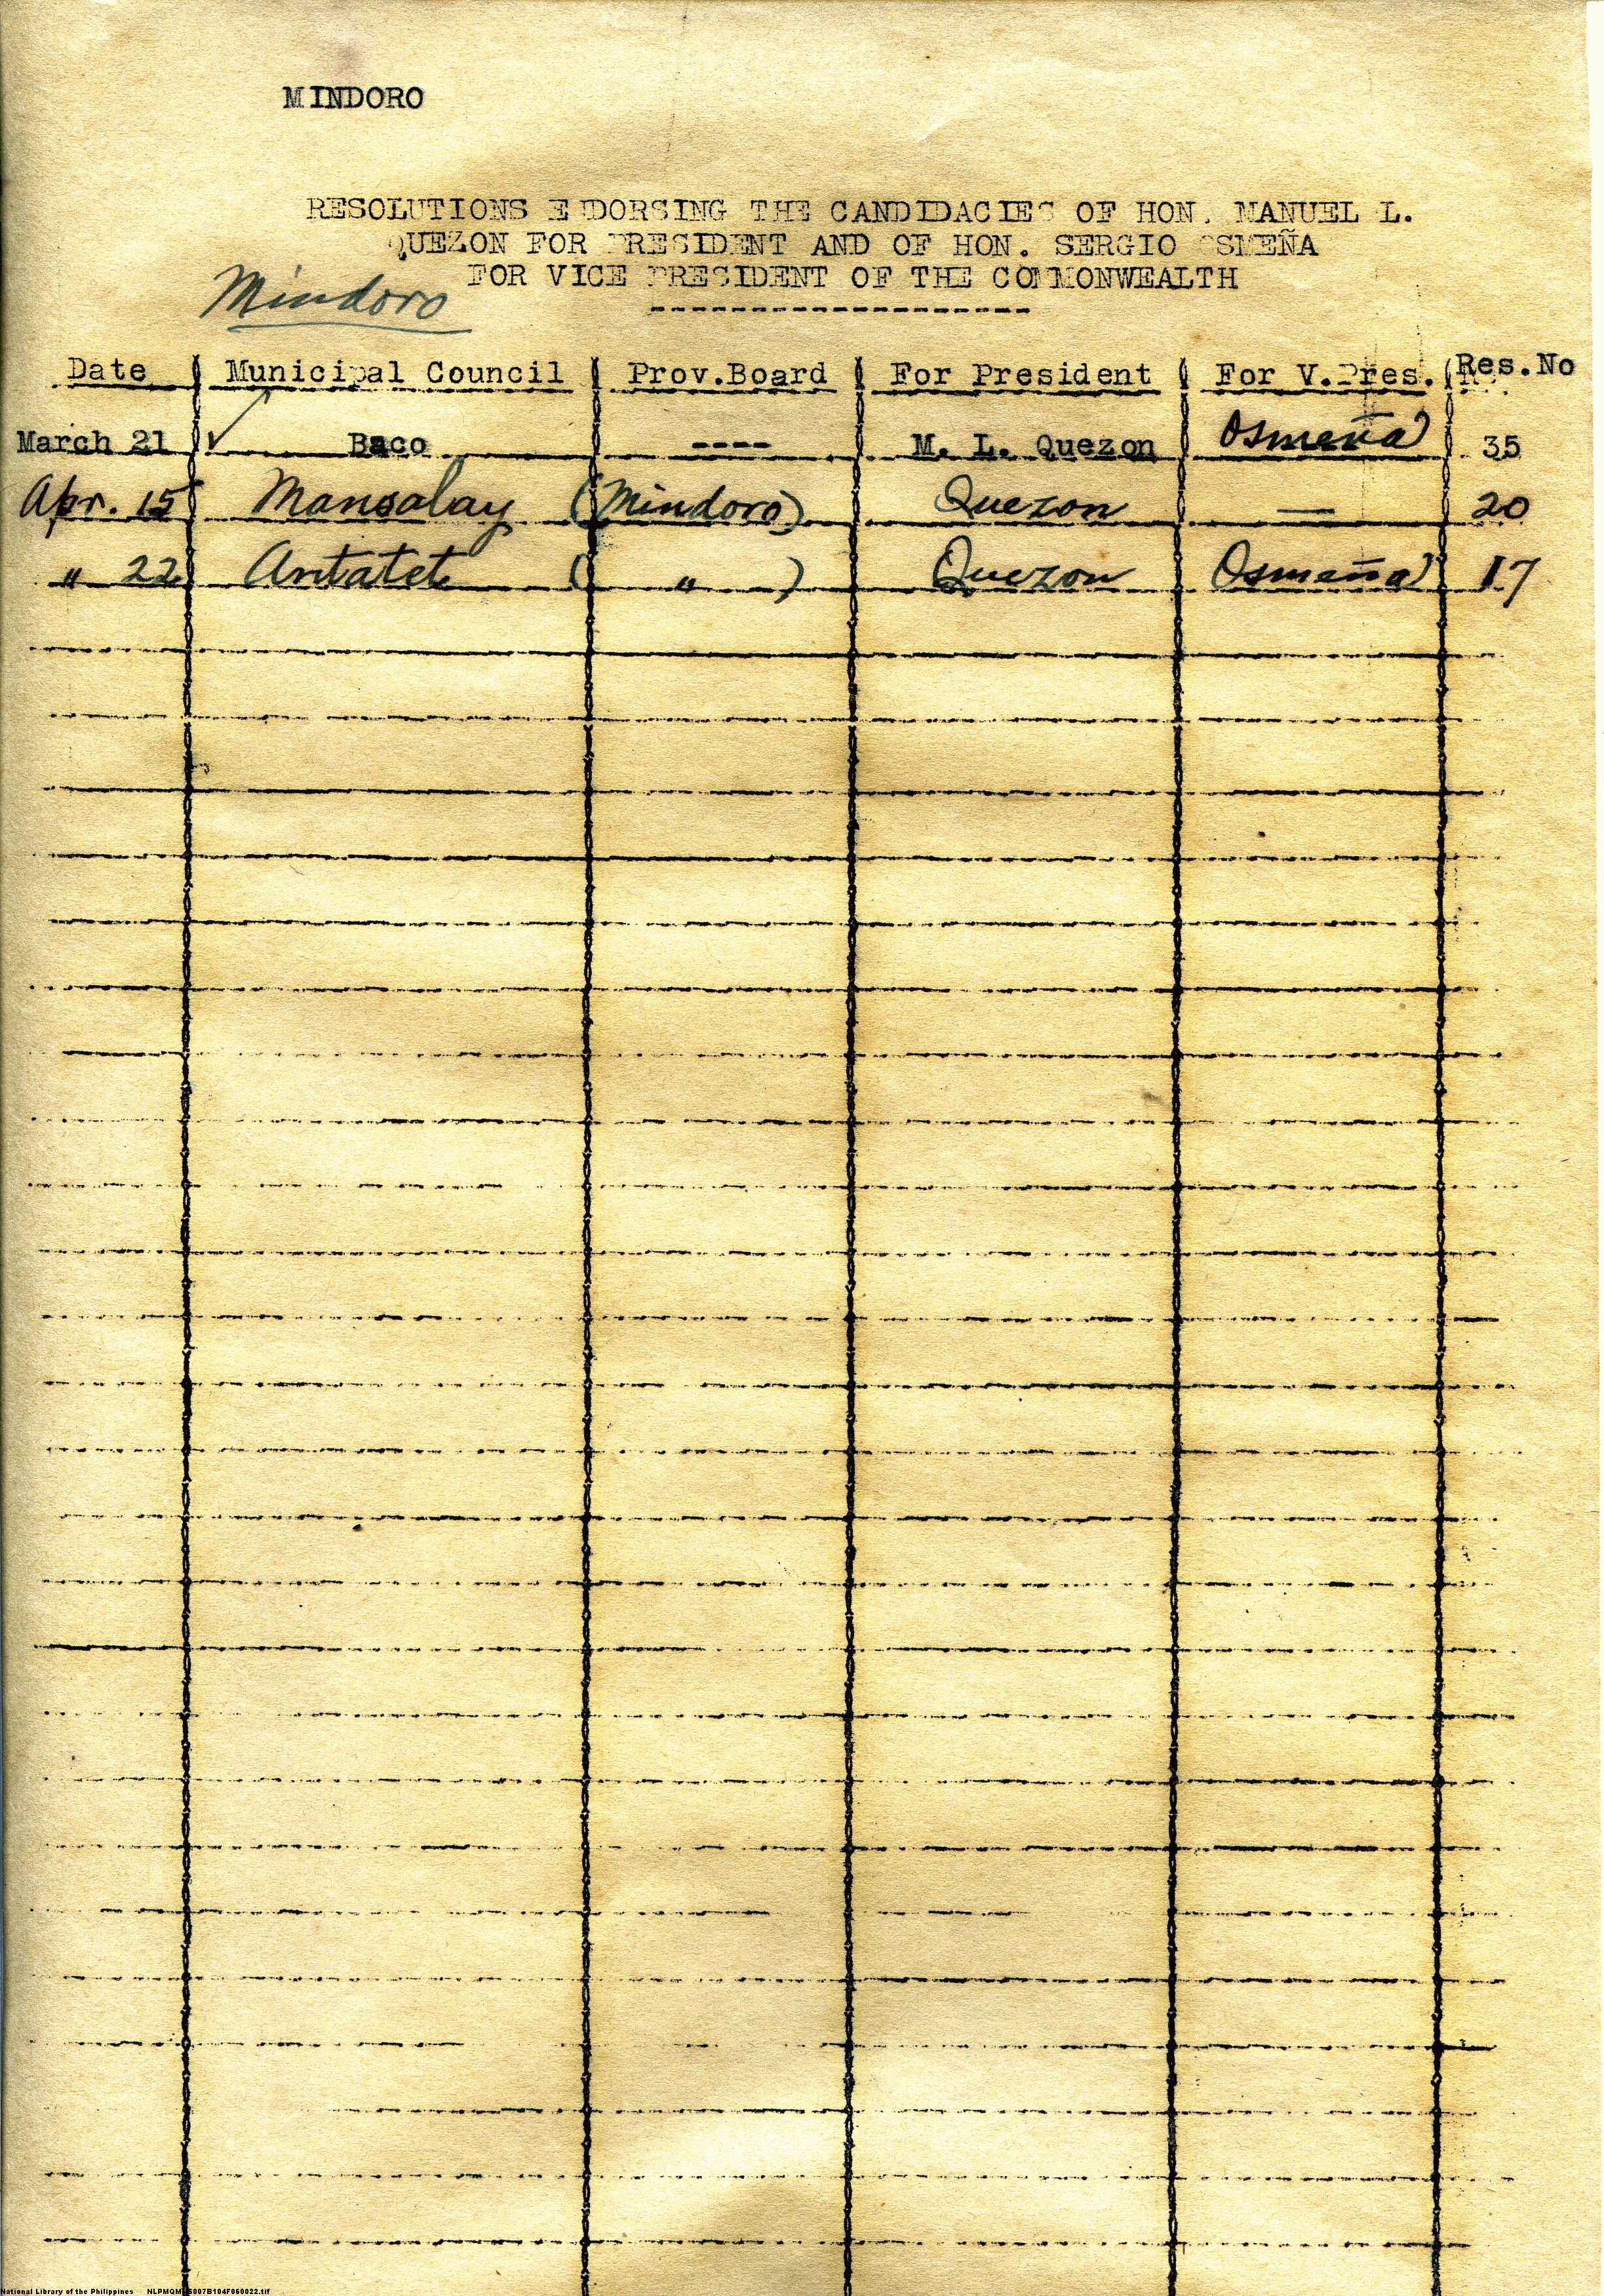 MINDORO
RESOLUTIONS ENDORSING THE CANDIDACIES OF HON. MANUEL L.
QUEZON FOR PRESIDENT AND OF HON. SERGIO OSMEÑA
FOR VICE PRESIDENT OF THE COMMONWEALTH
Mindoro
Date Municipal Council Prov.Board For President For V.Pres. Res.No
March 21 ✓ Baco ---- M. L. Quezon Osmeña 35
Apr. 15 Mansalay (Mindoro) Quezon — 20
" 22 Antatet ( " ) Quezon Osmeña 17
National Library of the Philippines